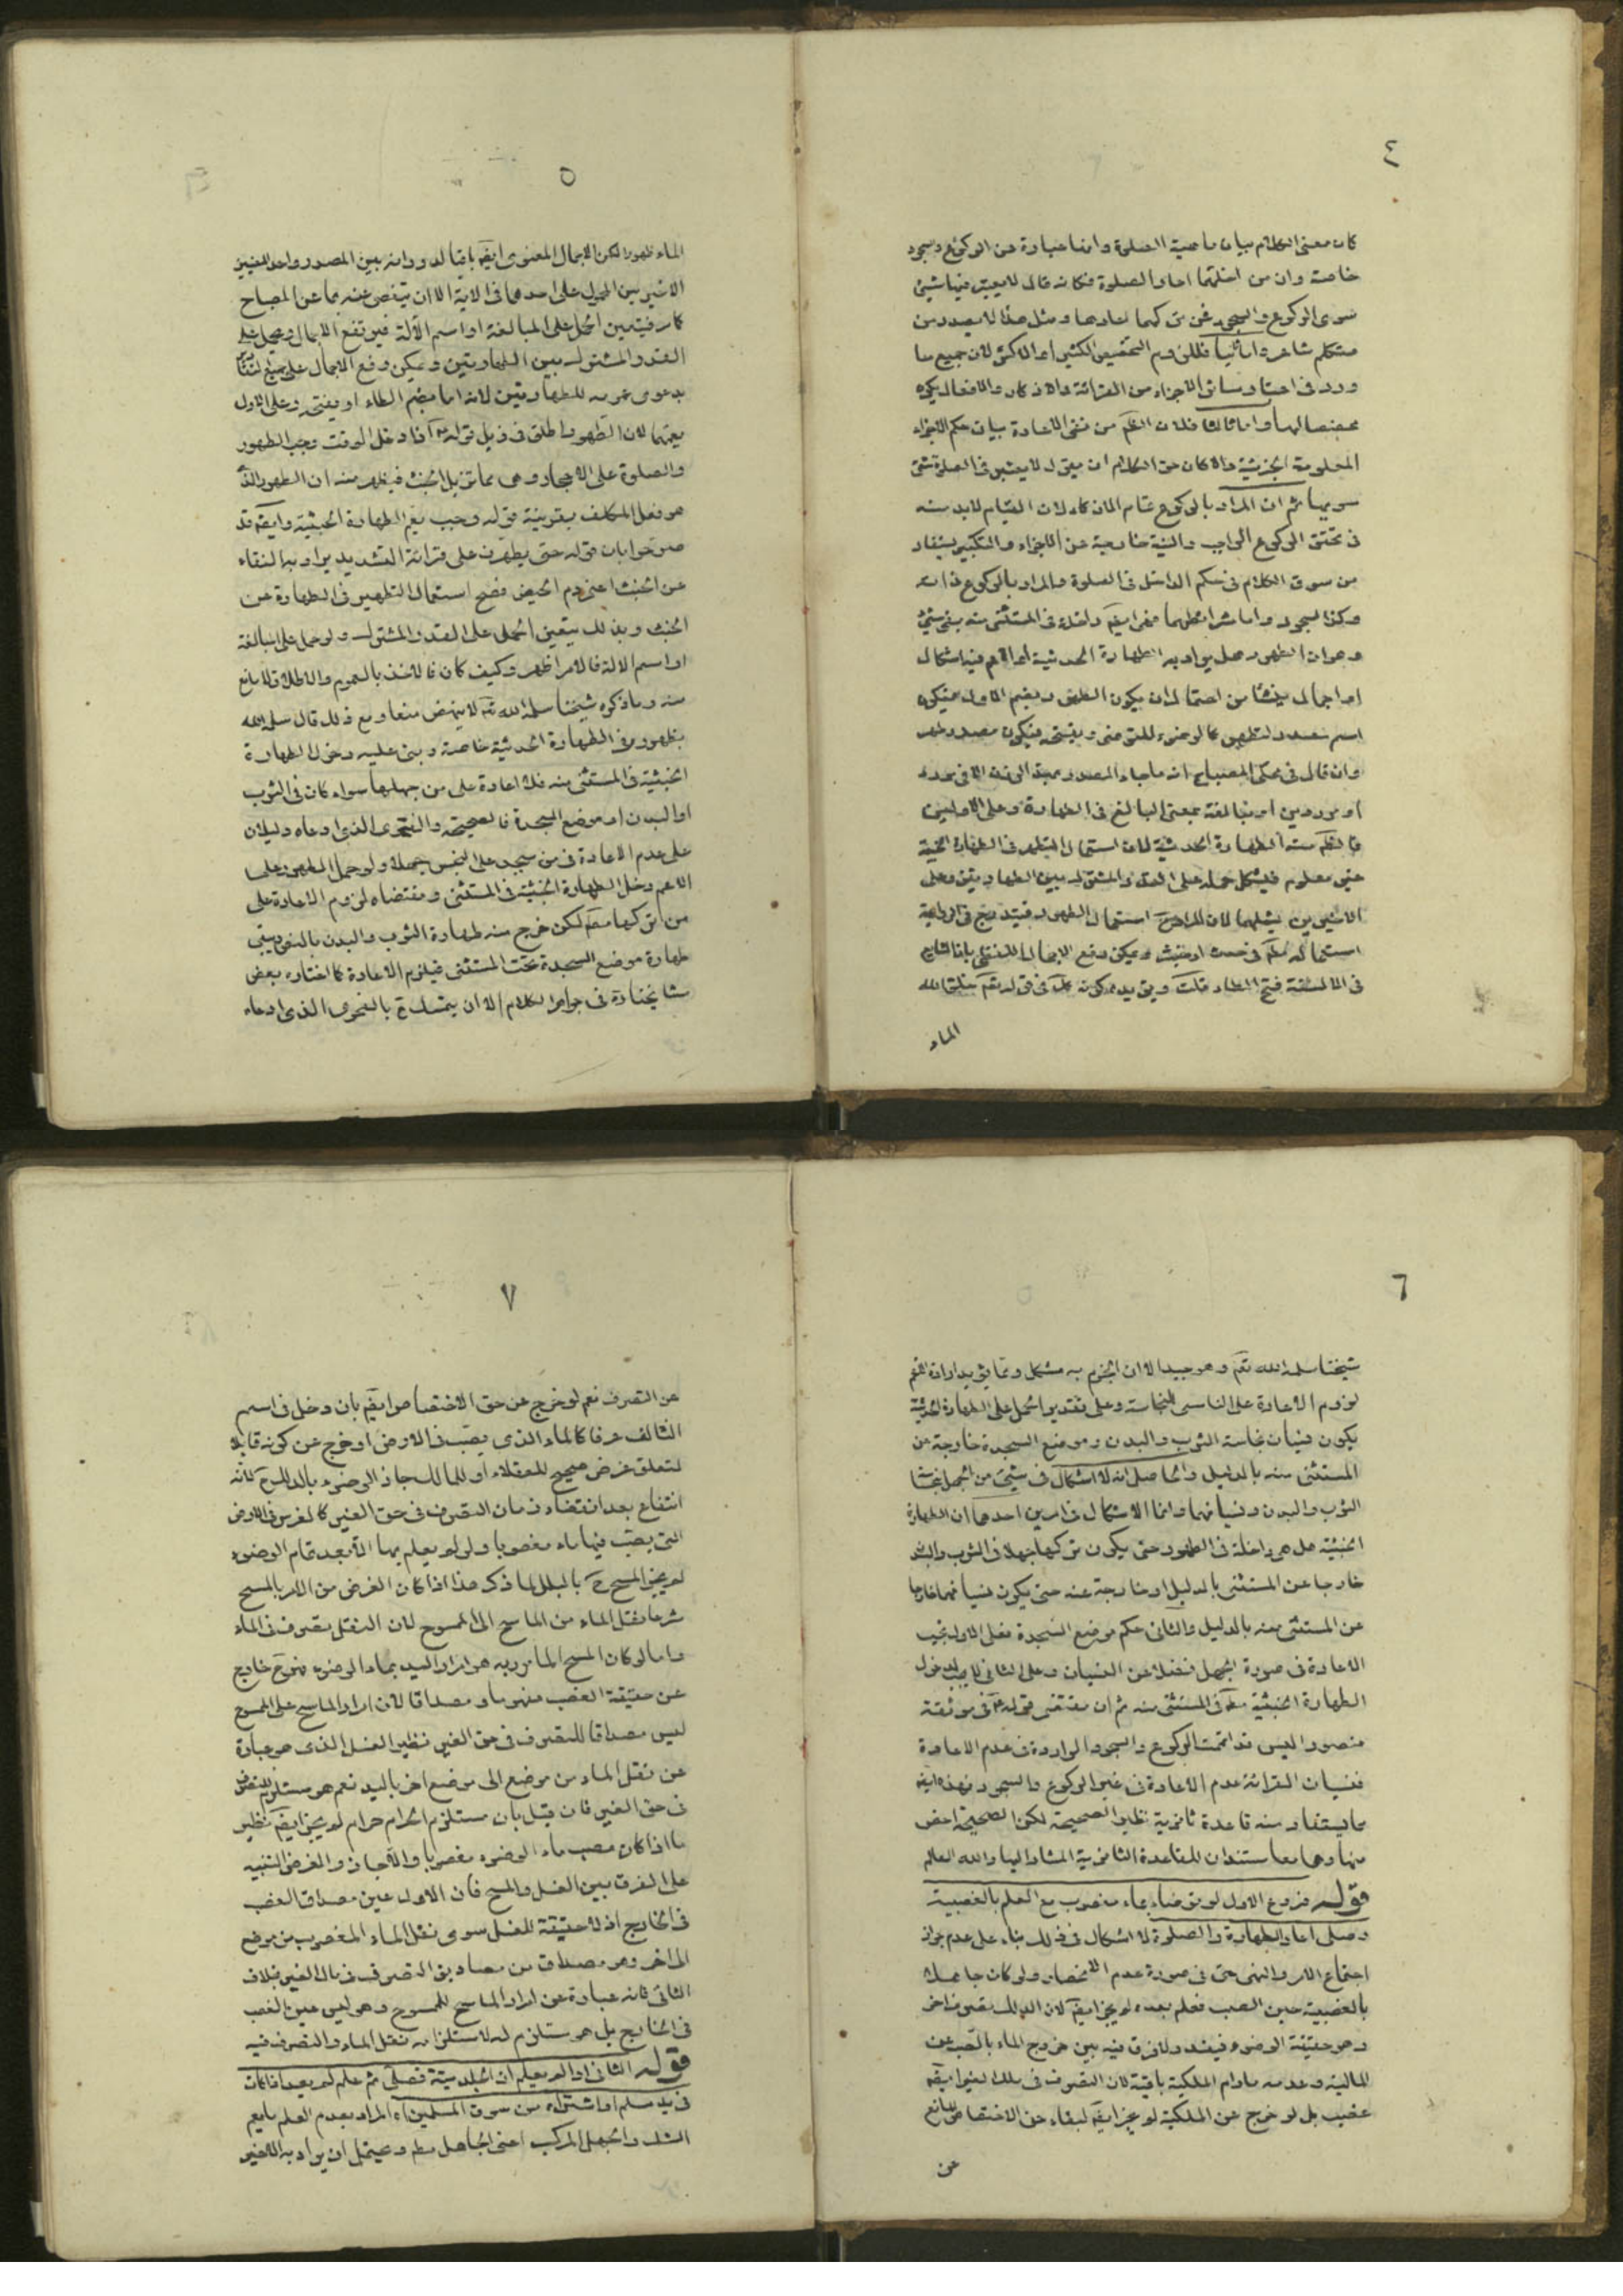 ٤
كان معنى الكلام بيان ماهية الصلوة وانها عبارة عن الركوع والسجود
خاصة وان من اخلهما اعاد الصلوة فكانه قال لا يعتبر فيها شيئ
سوى الركوع والسجود فمن تركهما اعادها ومثل هذا لا يصدر من
متكلم شاعر واما ثانيا فللزوم التخصيص الكثير او الاكثر لان جميع ما
ورد في اعتبار سائر الاجزاء من القرائة والاذكار والافعال يكون
مخصصا لها واما ثالثا فلان الظ من نفى الاعادة بيان حكم الاجزاء
المعلومة الجزئية والا كان حق الكلام ان يقول لا يعتبر في الصلوة شئ
سويهما ثم ان المراد بالركوع تمام الاركان لان القيام لابد منه
في تحقق الركوع الواجب والنية خارجة عن الاجزاء والتكبير يستفاد
من سوق الكلام في حكم الداخل في الصلوة والمراد بالركوع ذاته
وكذا السجود واما شرائطهما فهى ايضَ داخلة في المستثنى منه بقى شئ
وهو ان الطهور هل يراد به الطهارة الحدثية او الاعم فيه اشكال
او اجمال ينشا من احتمال ان يكون الطهور بضم الاول فيكون
اسم مصدر للتطهير كالوضوء للتوضى وبفتحه فيكون مصدر طهر
وان قال في محكى المصباح انه ما جاء المصدر بهذا الوزن الا في عدة
او موردين او مبالغة بمعنى البالغ في الطهارة وعلى الاولين
فالظ منه الطهارة الحدثية لان استعمال التطهر في الطهارة الخبثية
غير معلوم فيشكل حمله على القدر المشترك بين الطهارتين وعلى
الاخيرين يشملهما لان المراد ح استعمال الطهور فيندرج في الواجبة
استعماله مط في حدث او خبث ويمكن دفع الاجمال اللفظى بان الشايع
في الالسنة فتح الطاء قلت ويؤيده كونه كك في قوله تعَ خلق الله
الماء
٥
الماء طهورا لكن الاجمال المعنوى ايضَ باق لدورانه بين المصدر واحد المعنيين
الاخيرين المحمول على احدهما في الاية الا ان يتفصى عنه بما عن المصباح
كما في تعيين الحمل على المبالغة او اسم الآلة فيرتفع الاجمال ويحمل على
القدر المشترك بين الطهارتين ويمكن رفع الاجمال على جميع التقادير
بدعوى عمومه للطهارتين لانه اما بضم الطاء او بفتحه وعلى الاول
يعمهما لان الطهور اطلق في ذيل قوله ع اذا دخل الوقت وجب الطهور
والصلوة على الاحجار وهى مما تزيل الخبث فيظهر منه ان الطهور الذى
هو فعل المكلف بقرينة قوله وجب يعم الطهارة الخبثية وايضَ قد
صرحوا بان قوله حتى يطهرن على قرائة التشديد يراد به النقاء
عن الخبث اعنى دم الحيض فصح استعمال التطهير في الطهارة عن
الخبث وبذلك يتعين الحمل على القدر المشترك ولو حمل على المبالغة
او اسم الالة فالامر اظهر وكيف كان فالاخذ بالعموم والاطلاق لا مانع
منه وما ذكره شيخنا سلمه الله تعَ لا ينهض منعا ومع ذلك قال سلمه الله
بظهوره في الطهارة الحدثية خاصة وبنى عليه دخول الطهارة
الخبثية في المستثنى منه فلا اعادة على من جهلها سواء كان في الثوب
او البدن او موضع السجدة فالصحيحة والفحوى الذى ادعاه دليلان
على عدم الاعادة في من سجد على النجس جهلا ولو حمل الطهور على
الاعم دخل الطهارة الخبثية في المستثنى ومقتضاه لزوم الاعادة على
من تركها مط لكن خرج منه طهارة الثوب والبدن بالنص وبقى
طهارة موضع السجدة تحت المستثنى فيلزم الاعادة كما اختاره بعض
مشايخنا ره في جواهر الكلام الا ان يتمسك ح بالفحوى الذى ادعاه
٦
شيخنا سلمه الله تعَ وهو جيد الا ان الجزم به مشكل ومما يؤيد ارادة الاعم
لزوم الاعادة على الناسى للنجاسة وعلى تقدير الحمل على الطهارة الحدثية
يكون نسيان نجاسة الثوب والبدن وموضع السجدة خارجة عن
المستثنى منه بالدليل والحاصل انه لا اشكال في شيئ من الجهل بنجاسة
الثوب والبدن ونسيانهما وانما الاشكال في امرين احدهما ان الطهارة
الخبثية هل هى داخلة في الطهور حتى يكون تركها جهلا في الثوب والبدن
خارجا عن المستثنى بالدليل او خارجة عنه حتى يكون نسيانهما خارجا
عن المستثنى منه بالدليل والثانى حكم موضع السجدة فعلى الاول يجب
الاعادة في صورة الجهل فضلا عن النسيان وعلى الثانى لا يجب لدخول
الطهارة الخبثية مط في المستثنى منه ثم ان مقتضى قوله ع في موثقة
منصور اليس قد اتممت الركوع والسجود الواردة في عدم الاعادة
بنسيان القرائة عدم الاعادة في غير الركوع والسجود فهذه ايضا
مما يستفاد منه قاعدة ثانوية نظير الصحيحة لكن الصحيحة اخص
منها وهما معا مستندان للقاعدة الثانوية المشار اليها والله العالم
قوله فروع الاول لو توضاء بماء مغصوب مع العلم بالغصبية
وصلى اعاد الطهارة والصلوة لا اشكال في ذلك بناء على عدم جواز
اجتماع الامر والنهى حتى في صورة عدم الانحصار ولو كان جاهلا
بالغصبية حين الصب فعلم بعده لم يجز ايضَ لان الدلك تصرف اخر
وهو حقيقة الوضوء فيفسد ولا فرق فيه بين خروج الماء بالصب عن
المالية وعدمه مادام الملكية باقية لان التصرف في ملك الغير ايضَ
غصب بل لو خرج عن الملكية لم يجز ايضَ لبقاء حق الاختصاص المانع
عن
٧
عن التصرف نعم لو خرج عن حق الاختصاص ايضَ بان دخل في اسم
التالف عرفا كالماء الذى يصب في الارض او خرج عن كونه قابلا
لتعلق غرض صحيح للعقلاء او للمالك جاز الوضوء بالدلك ح لانه
انتفاع بعد انقضاء زمان التصرف في حق الغير كالغرس في الارض
التى يصب فيها ماء مغصوبا ولو لم يعلم بها الا بعد تمام الوضوء
لم يجز المسح ح بالبلل لما ذكر هذا اذا كان الغرض من الامر بالمسح
شرعا نقل الماء من الماسح الى الممسوح لان النقل تصرف في الماء
واما لو كان المسح المامور به هو امرار اليد بماء الوضوء فهو ح خارج
عن حقيقة الغصب مفهوما ومصداقا لان امرار الماسح على الممسوح
ليس مصداقا للتصرف في حق الغير نظير الغسل الذى هو عبارة
عن نقل الماء من موضع الى موضع اخر باليد نعم هو مستلزم للتصرف
في حق الغير فان قيل بان مستلزم الحرام حرام لم يجز ايضَ نظير
ما اذا كان مصب ماء الوضوء مغصوبا والا جاز والغرض التنبيه
على الفرق بين الغسل والمسح فان الاول عين مصداق الغصب
في الخارج اذ لا حقيقة للغسل سوى نقل الماء المغصوب من موضع
الى اخر وهو مصداق من مصاديق التصرف في مال الغير بخلاف
الثانى فانه عبارة عن امرار الماسح للممسوح وهو ليس عين الغصب
في الخارج بل هو مستلزم له لاستلزامه نقل الماء والتصرف فيه
قوله الثانى اذا لم يعلم ان الجلد ميتة فصلى ثم علم لم يعد اذا كان
في يد مسلم او اشتراه من سوق المسلمين اه المراد بعدم العلم ما يعم
الشك والجهل المركب اعنى الجاهل مط ويحتمل ان يراد به الاخير